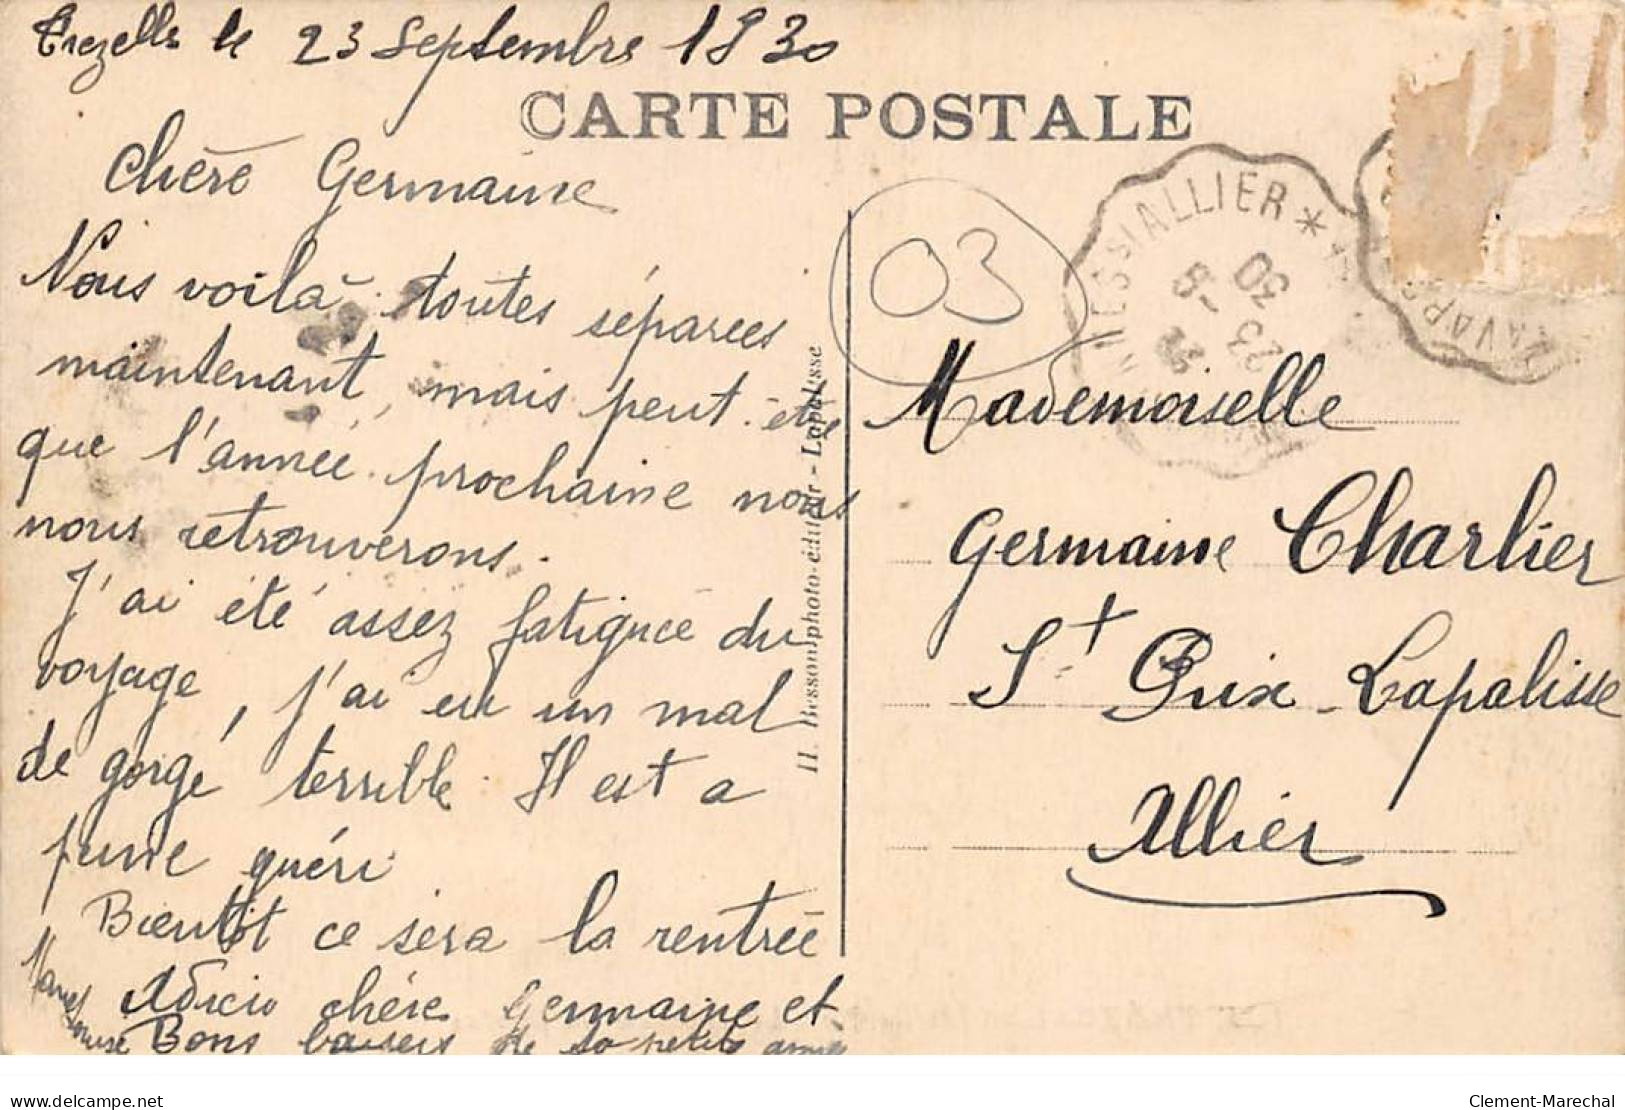 Trezelles le 23 Septembre 1930
CARTE POSTALE
Chère Germaine
Nous voilà toutes séparées
maintenant, mais peut-être
que l'année prochaine nous
nous retrouverons.
J'ai été assez fatiguée du
voyage, j'ai eu un mal
de gorge terrible. Il est a
guéri
Bientôt ce sera la rentrée
Adieu chère Germaine et
Bons baisers de ta petite amie
H. Besson, photo-éditeur - Lapalisse
03
ALLIER *
23 - 9
30
Mademoiselle
Germaine Charlier
St Prix - Lapalisse
Allier
delcampe.net
Clement-Marechal